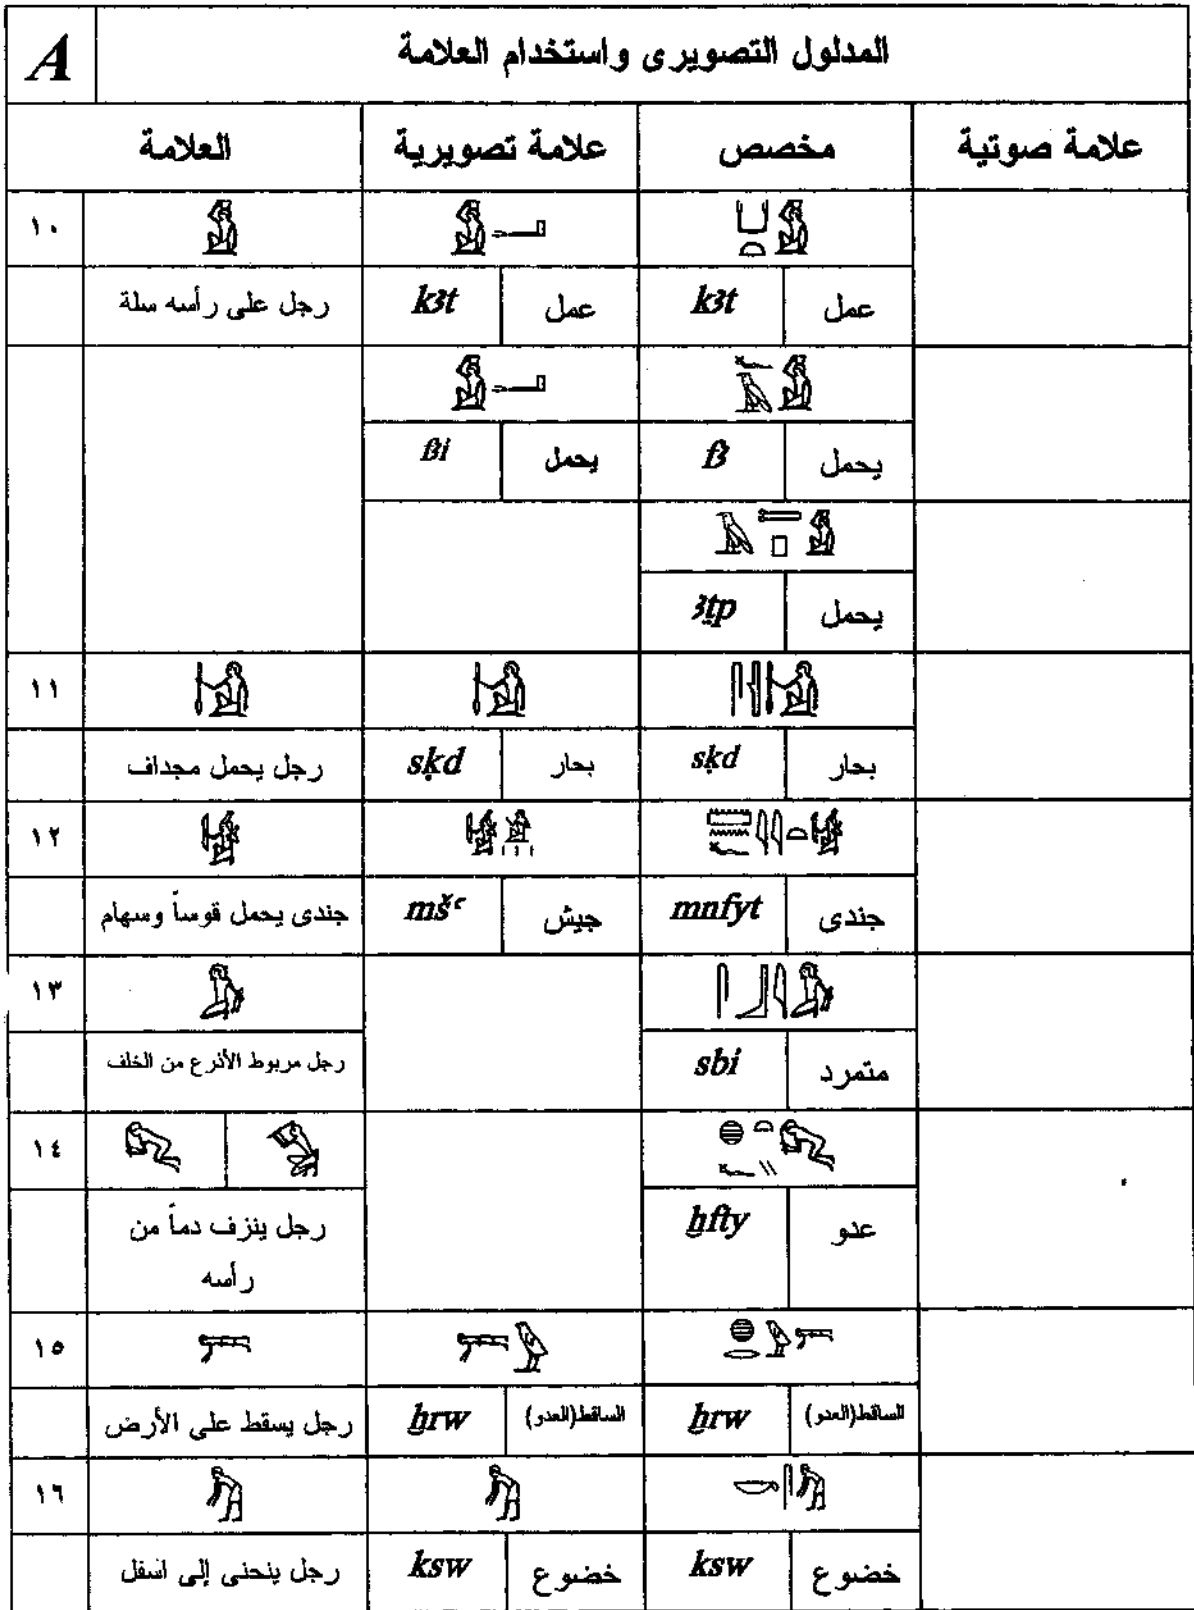 A المدلول التصويرى واستخدام العلامة
العلامة علامة تصويرية مخصص علامة صوتية
١٠
رجل على رأسه سلة kꜣt عمل kꜣt عمل
fꜣi يحمل fꜣ يحمل
ꜣṯp يحمل
١١
رجل يحمل مجداف sḳd بحار sḳd بحار
١٢
جندى يحمل قوساً وسهام mšꜥ جيش mnfyt جندى
١٣
رجل مربوط الأذرع من الخلف sbi متمرد
١٤
رجل ينزف دماً من ẖfty عدو
رأسه
١٥
رجل يسقط على الأرض ẖrw الساقط(العدو) ẖrw الساقط(العدو)
١٦
رجل ينحنى إلى اسفل ksw خضوع ksw خضوع